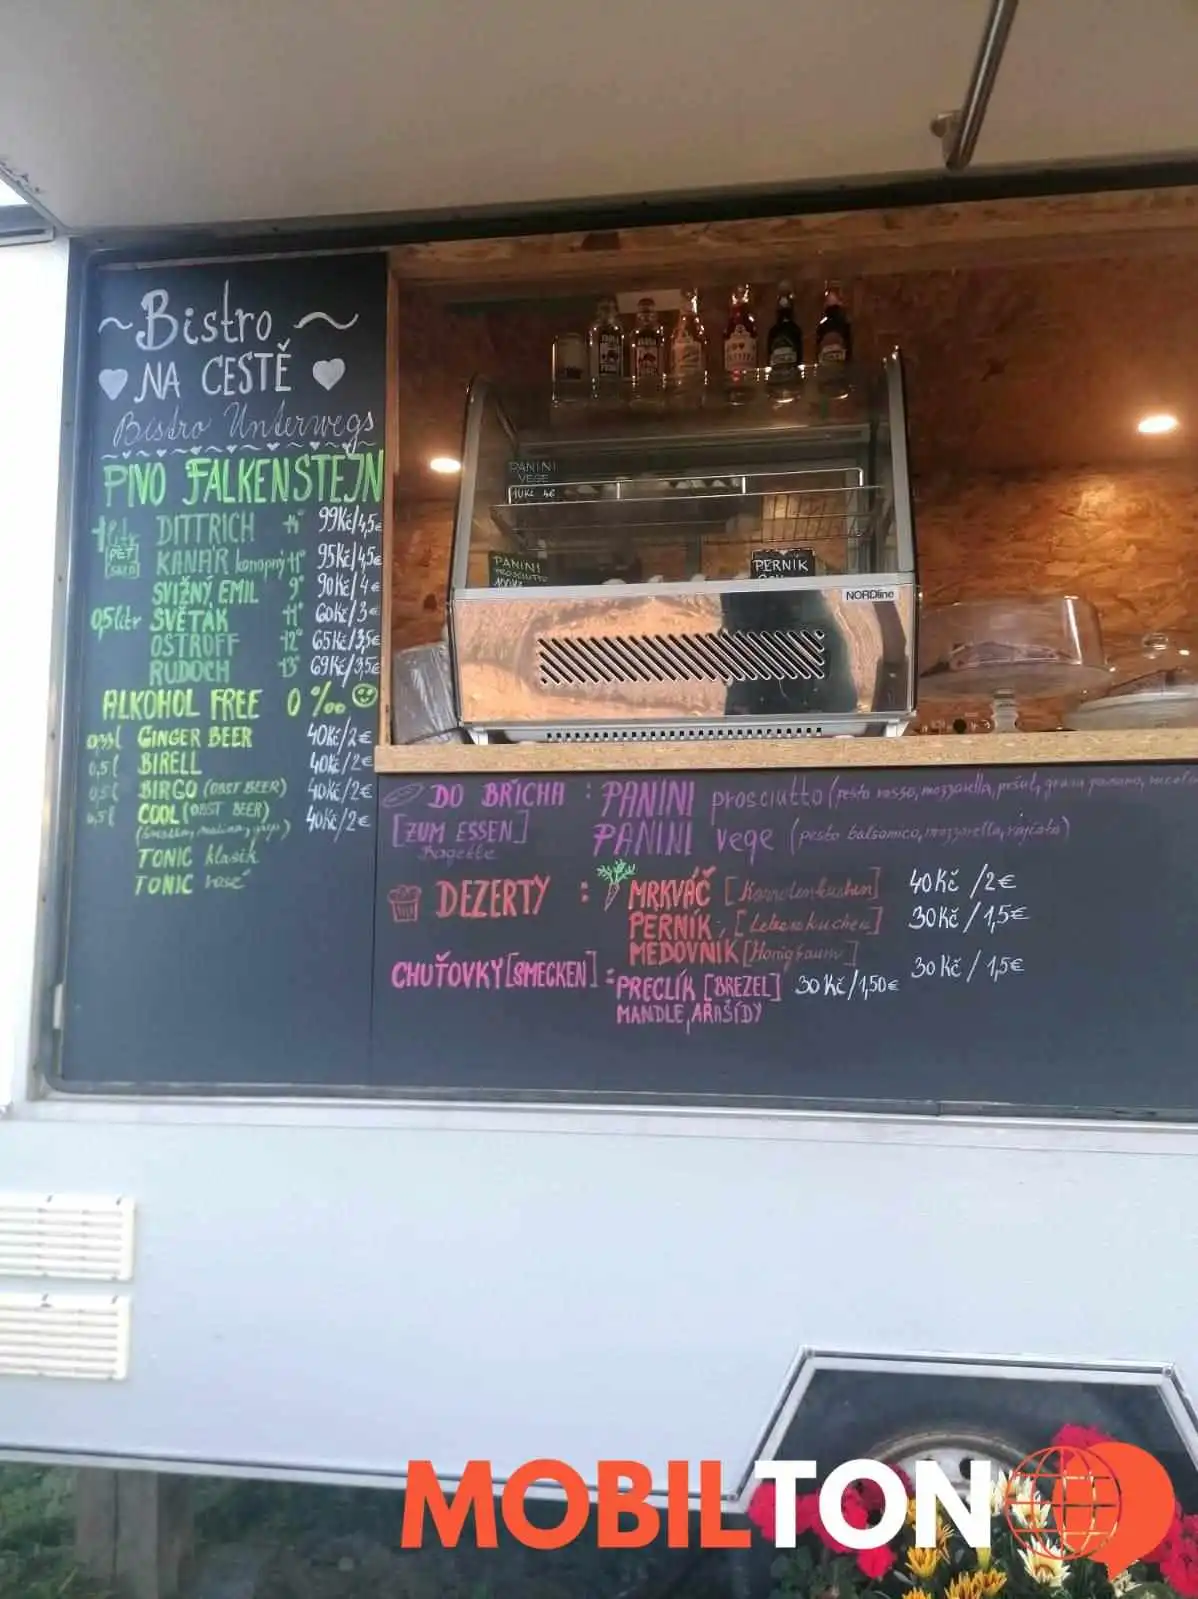 Bistro
NA CESTĚ
Bistro Unterwegs
PIVO FALKENŠTEJN
1 litr DITTRICH 14° 99Kč/4,5€
PET KANÁR konopný 11° 95Kč/4,5€
SVIŽNÝ EMIL 9° 90Kč/4€
0,5 litr SVĚTÁK 11° 60Kč/3€
OSTROFF 12° 65Kč/3,5€
RUDOCH 13° 69Kč/3,5€
ALKOHOL FREE 0 ‰
0,33l GINGER BEER 40Kč/2€
0,5l BIRELL 40Kč/2€
0,5l BIRGO (OBST BEER) 40Kč/2€
0,5l COOL (OBST BEER) 40Kč/2€
TONIC klasik
TONIC rosé
PANINI
VEGE
PANINI
PROSCIUTTO
PERNIK
NORDline
DO BŘICHA : PANINI prosciutto (pesto rosso, mozzarella, pršut, grana padano,
[ZUM ESSEN] PANINI vege (pesto balsamico, mozzarella, rajčata)
Bagette
DEZERTY : MRKVÁČ [Karottenkuchen] 40Kč/2€
PERNÍK, [Lebenkuchen] 30Kč/1,5€
MEDOVNÍK [Honigbaum] 30Kč/1,5€
CHUŤOVKY [SMECKEN] : PRECLÍK [BREZEL] 30Kč/1,50€
MANDLE, ARAŠÍDY
MOBILTON